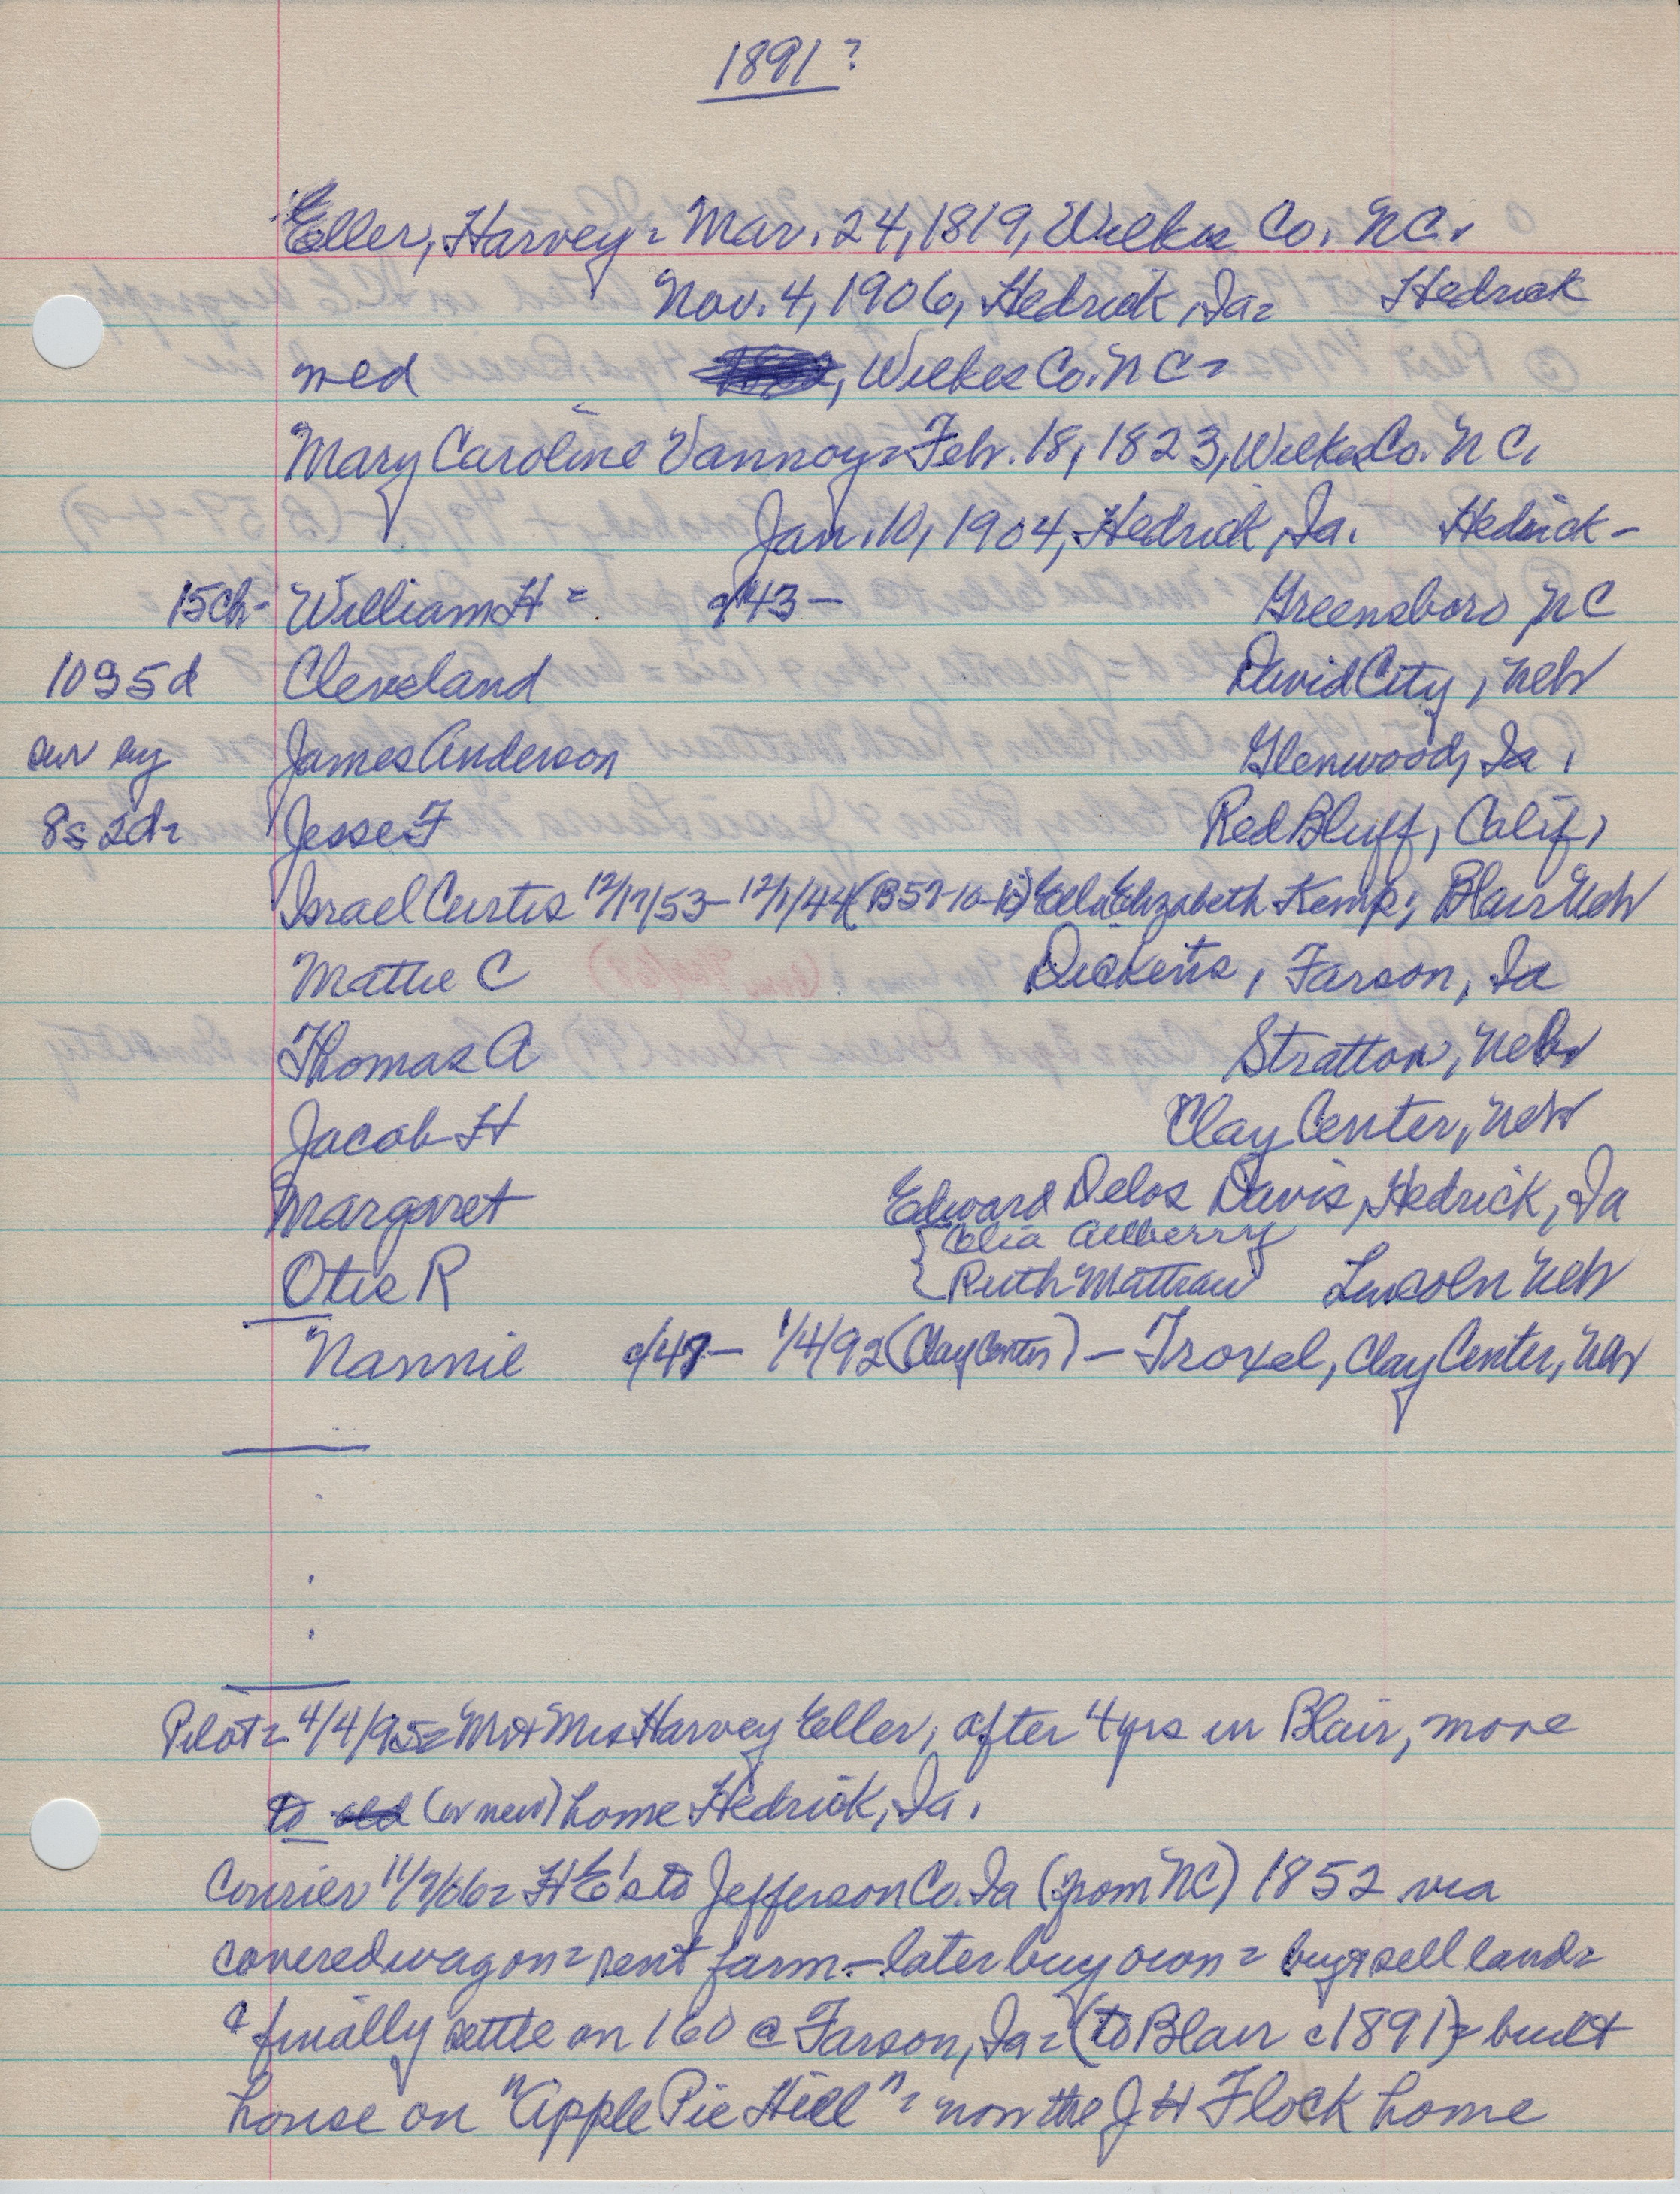 1891?
Eller, Harvey = Mar. 24, 1819, Wilkes Co. NC.
Nov. 4, 1906, Hedrick, Ia = Hedrick
med , Wilkes Co. NC =
Mary Caroline Vannoy = Feb. 18, 1823, Wilkes Co. NC.
Jan. 10, 1904, Hedrick, Ia. Hedrick -
15ch - William H = c/43 - Greensboro NC
10s 5d Cleveland David City, Neb
sur by James Anderson Glenwood, Ia.
8s 2d = Jesse F Red Bluff, Calif,
Israel Curtis 12/17/53 - 12/1/44 (B57-10-) Ella Elizabeth Kemp, Blair Neb
Mattie C Dickens, Farson, Ia
Thomas A Stratton, Nebr
Jacob H Clay Center, Neb
Margaret Edward Delos Davis, Hedrick, Ia
{ Celia Allberry
Otis R { Ruth Lincoln Neb
Nannie c/47 - 1/4/92 (Clay Center) - Troxel, Clay Center, Neb
Pilot = 4/4/95 = Mr & Mrs Harvey Eller, after 4 yrs in Blair, move
to old (or new) home Hedrick, Ia.
Courier 11/7/06 = HE's to Jefferson Co. Ia (from NC) 1852 via
covered wagon = rent farm - later buy own = buy & sell land =
& finally settle on 160 @ Farson, Ia = (to Blair c1891) = built
house on "Apple Pie Hill" = now the J H Flock home